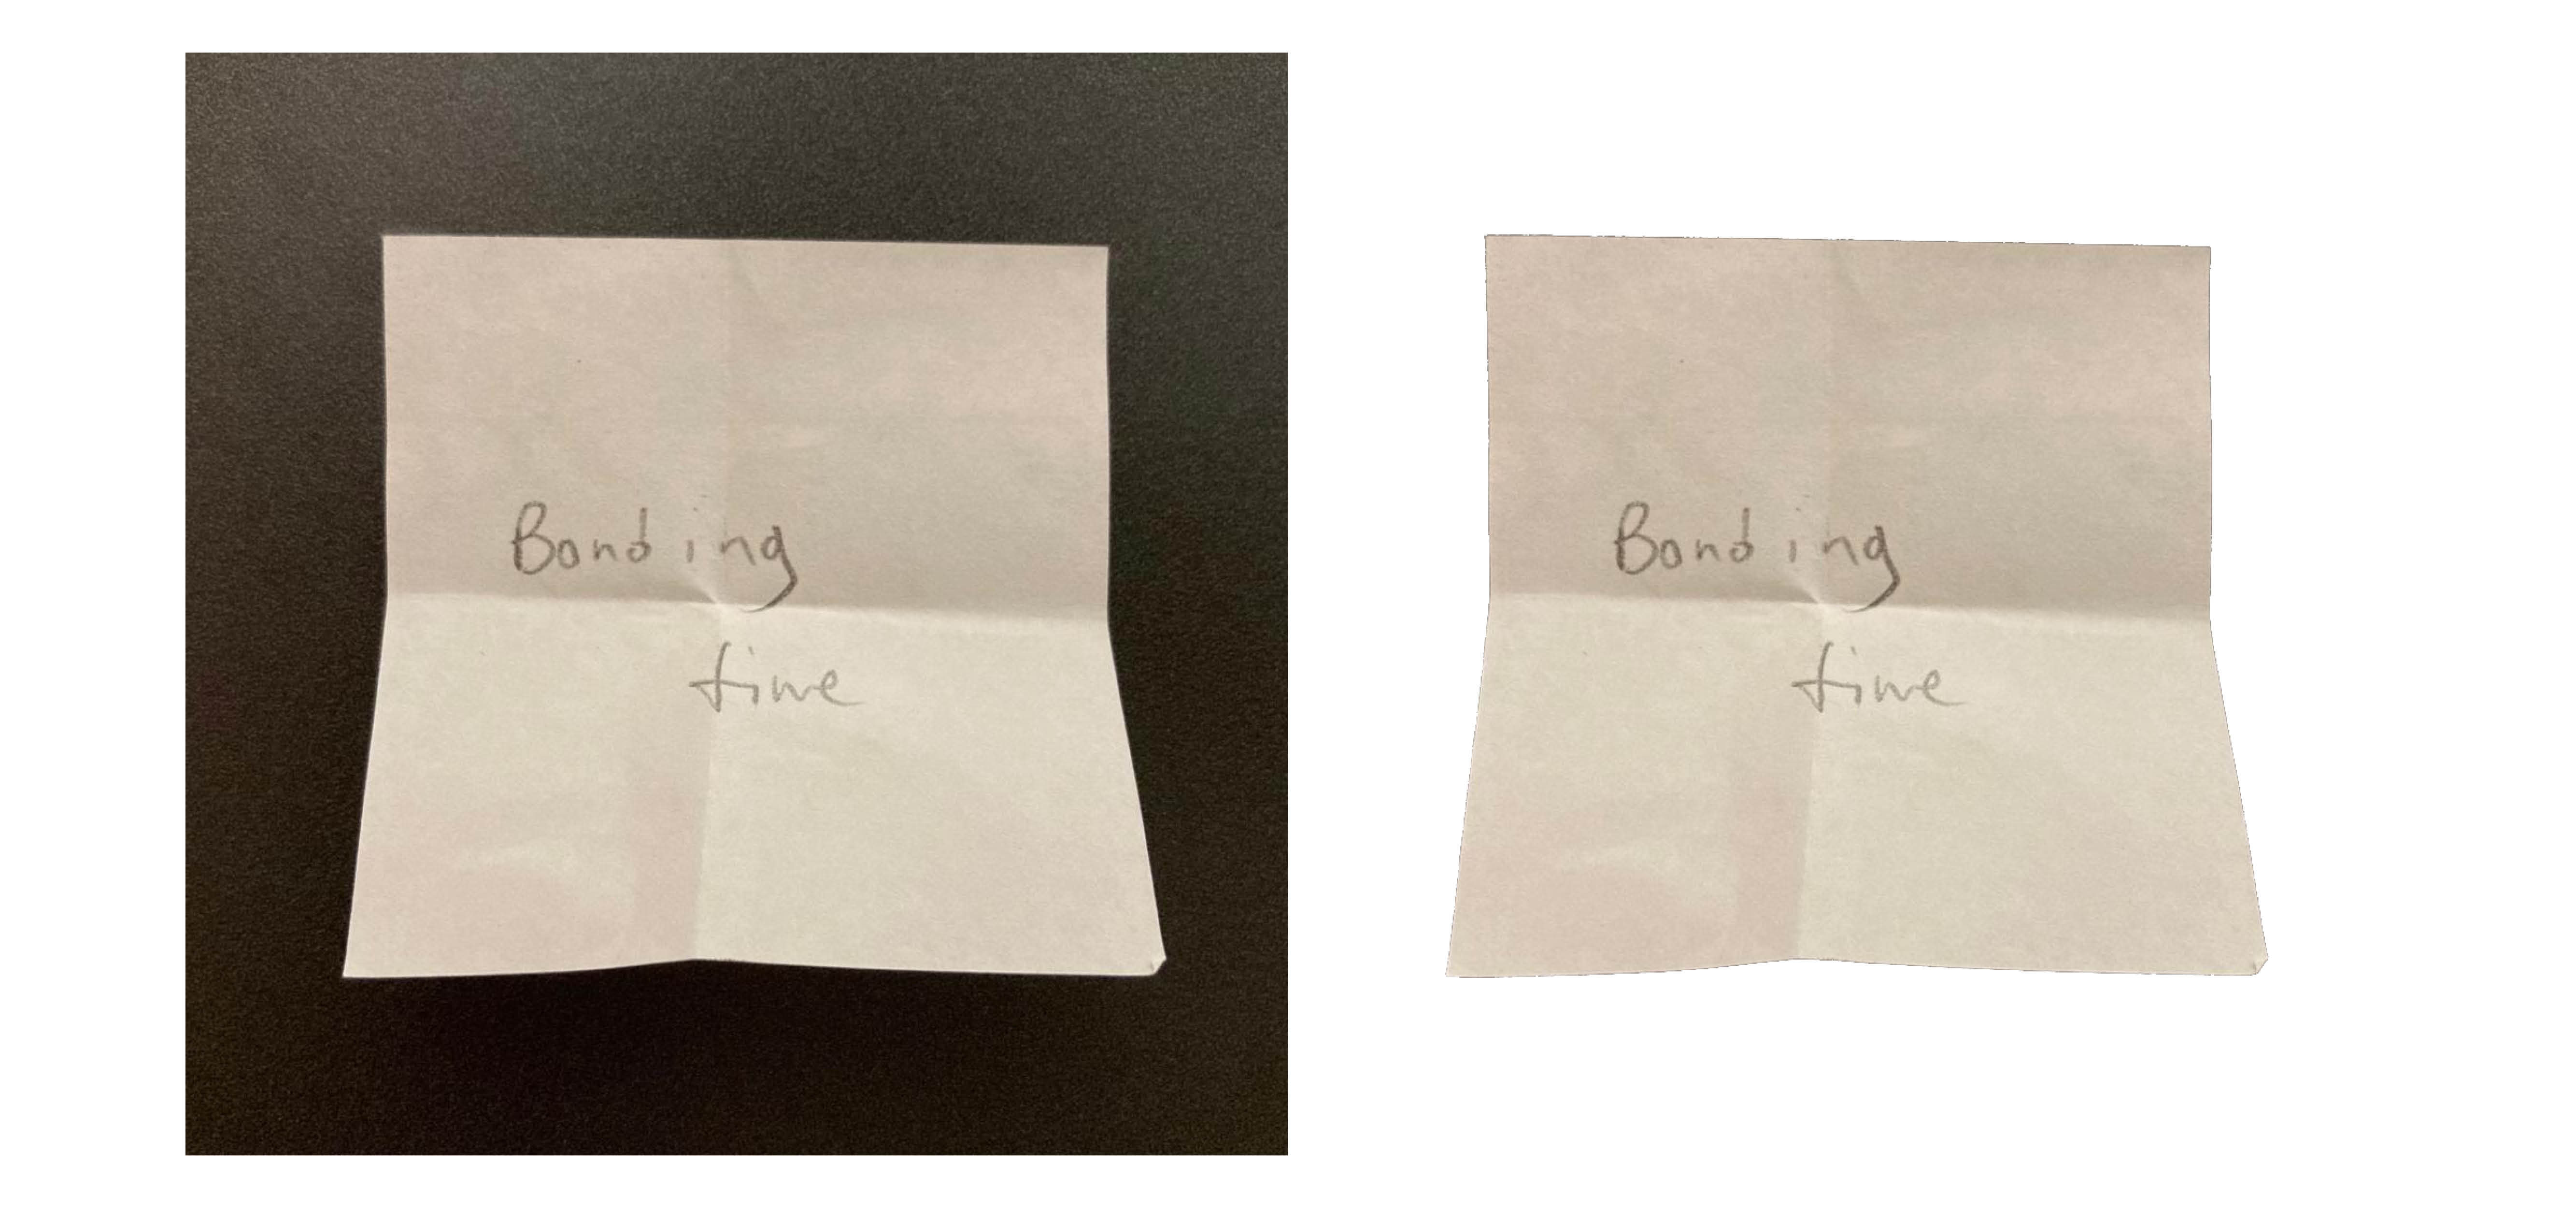 Bonding
time
Bonding
time